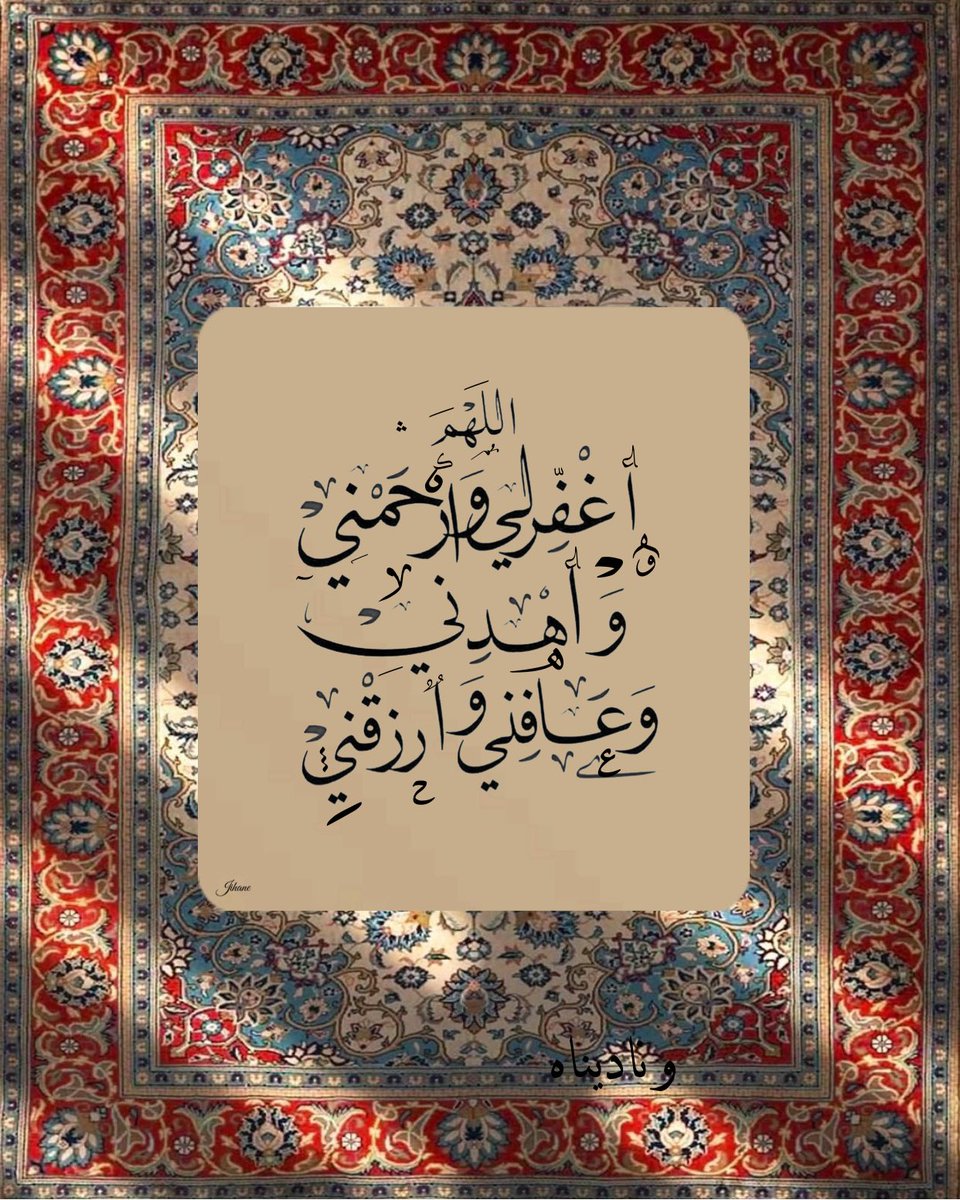 اللَّهُمَ
أغْفِّرلي وَارْحَمْني
وَأهْدِني
وَعَافِني وَارزقْني
Jihane
و ناديناه